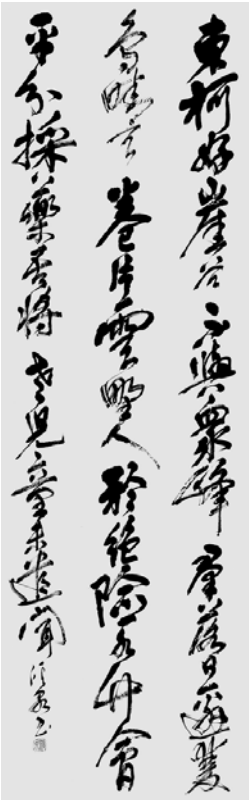 東柯好崖谷不與衆峰羣落日邀雙
鳥晴天卷片雲野人矜絕險水竹會
平分採藥吾將老兒童未遣聞 書